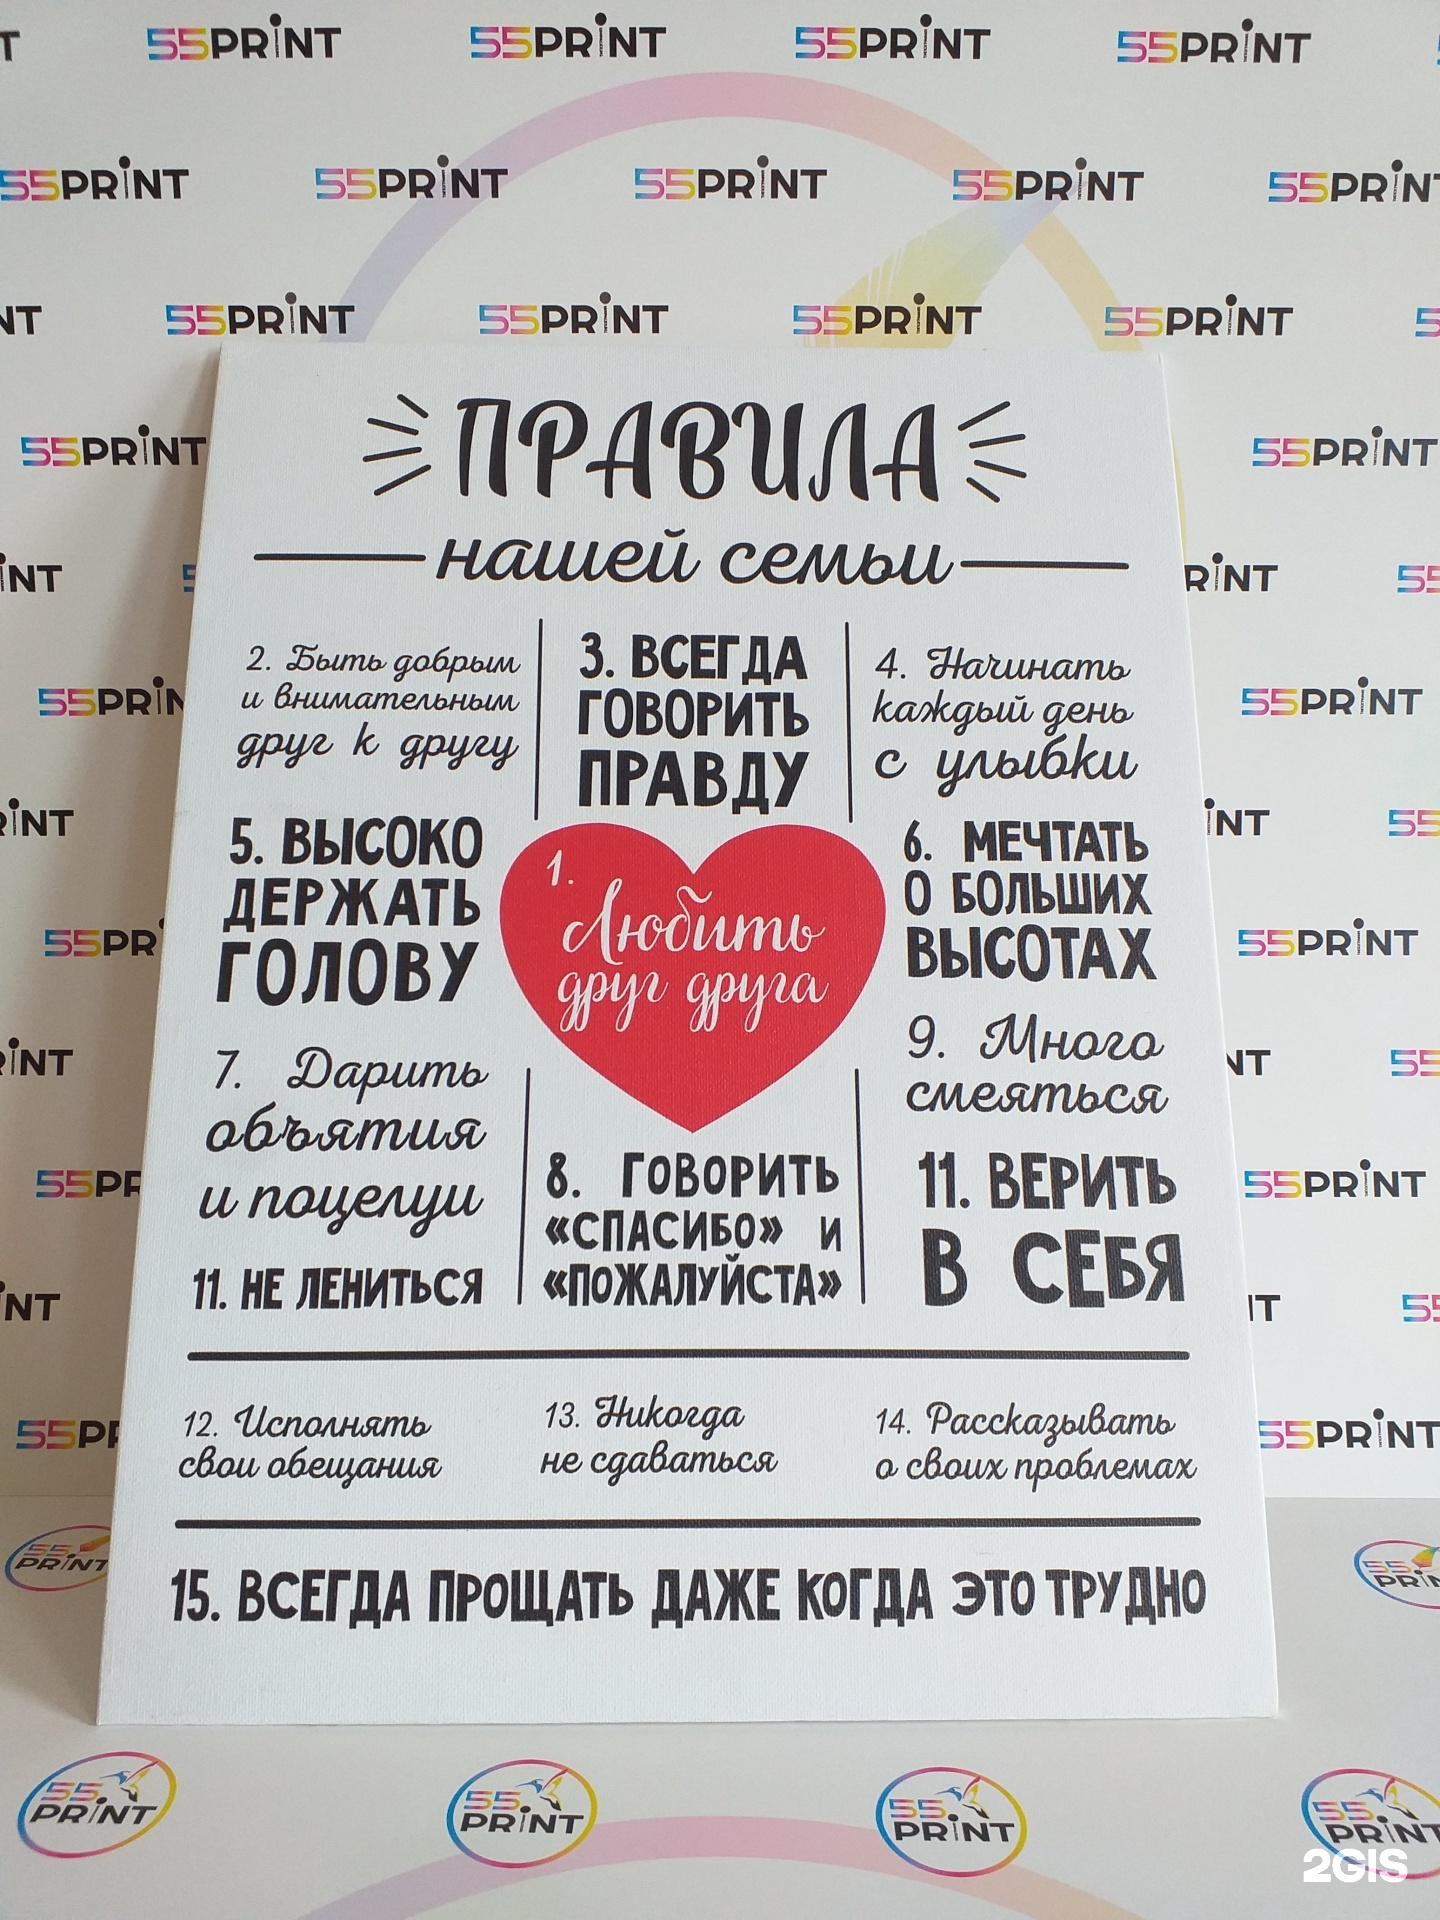 55PRINT 55PRINT 55PRINT 55PRINT
55PRINT 55PRINT 55PRINT 55PRINT 55PRINT
55PRINT 55PRINT 55PRINT 55PRINT
ПРАВИЛА
нашей семьи
2. Быть добрым
и внимательным
друг к другу
3. ВСЕГДА
ГОВОРИТЬ
ПРАВДУ
4. Начинать
каждый день
с улыбки
5. ВЫСОКО
ДЕРЖАТЬ
ГОЛОВУ
1.
Любить
друг друга
6. МЕЧТАТЬ
О БОЛЬШИХ
ВЫСОТАХ
7. Дарить
объятия
и поцелуи
8. ГОВОРИТЬ
«СПАСИБО» И
«ПОЖАЛУЙСТА»
9. Много
смеяться
11. НЕ ЛЕНИТЬСЯ
11. ВЕРИТЬ
В СЕБЯ
12. Исполнять
свои обещания
13. Никогда
не сдаваться
14. Рассказывать
о своих проблемах
15. ВСЕГДА ПРОЩАТЬ ДАЖЕ КОГДА ЭТО ТРУДНО
55PRINT 55PRINT
55PRINT
55PRINT
55PRINT
55PRINT
55
PRINT
55
PRINT
55
PRINT
55
PRINT
55
PRINT
2GIS